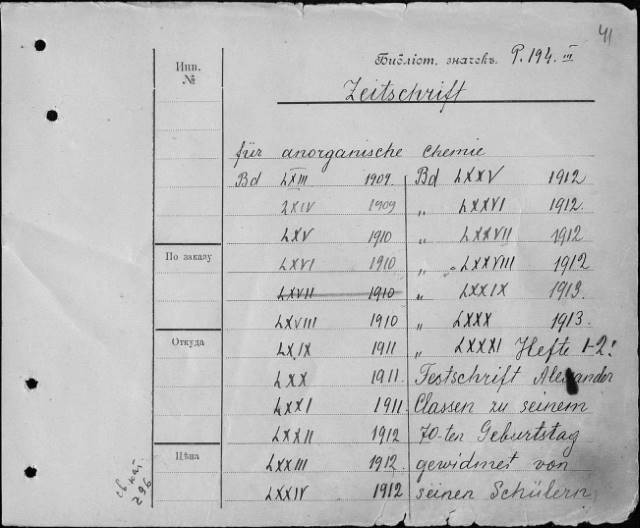 41
Библіот. значекъ. P. 194. III
Инв.
№
Zeitschrift
für anorganische Chemie
Bd LXIII 1909. Bd LXXV 1912
LXIV 1909 „ LXXVI 1912.
LXV 1910 „ LXXVII 1912
По заказу
LXVI 1910 „ LXXVIII 1912
LXVII 1910 „ LXXIX 1913.
LXVIII 1910 „ LXXX 1913.
Откуда
LXIX 1911 „ LXXXI Hefte 1-2:
LXX 1911. Festschrift Alexander
LXXI 1911. Classen zu seinem
LXXII 1912 70-ten Geburtstag
Цѣна
LXXIII 1912. gewidmet von
LXXIV 1912 seinen Schülern
296